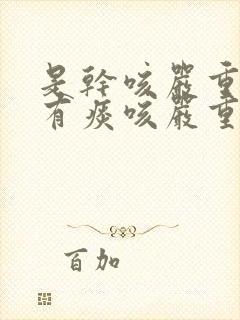 是幹咳嚴重
有痰咳嚴重
百加